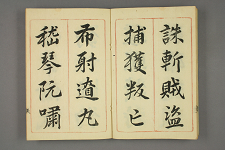 誅斬賊盜
捕獲叛亡
布射遼丸
嵇琴阮嘯